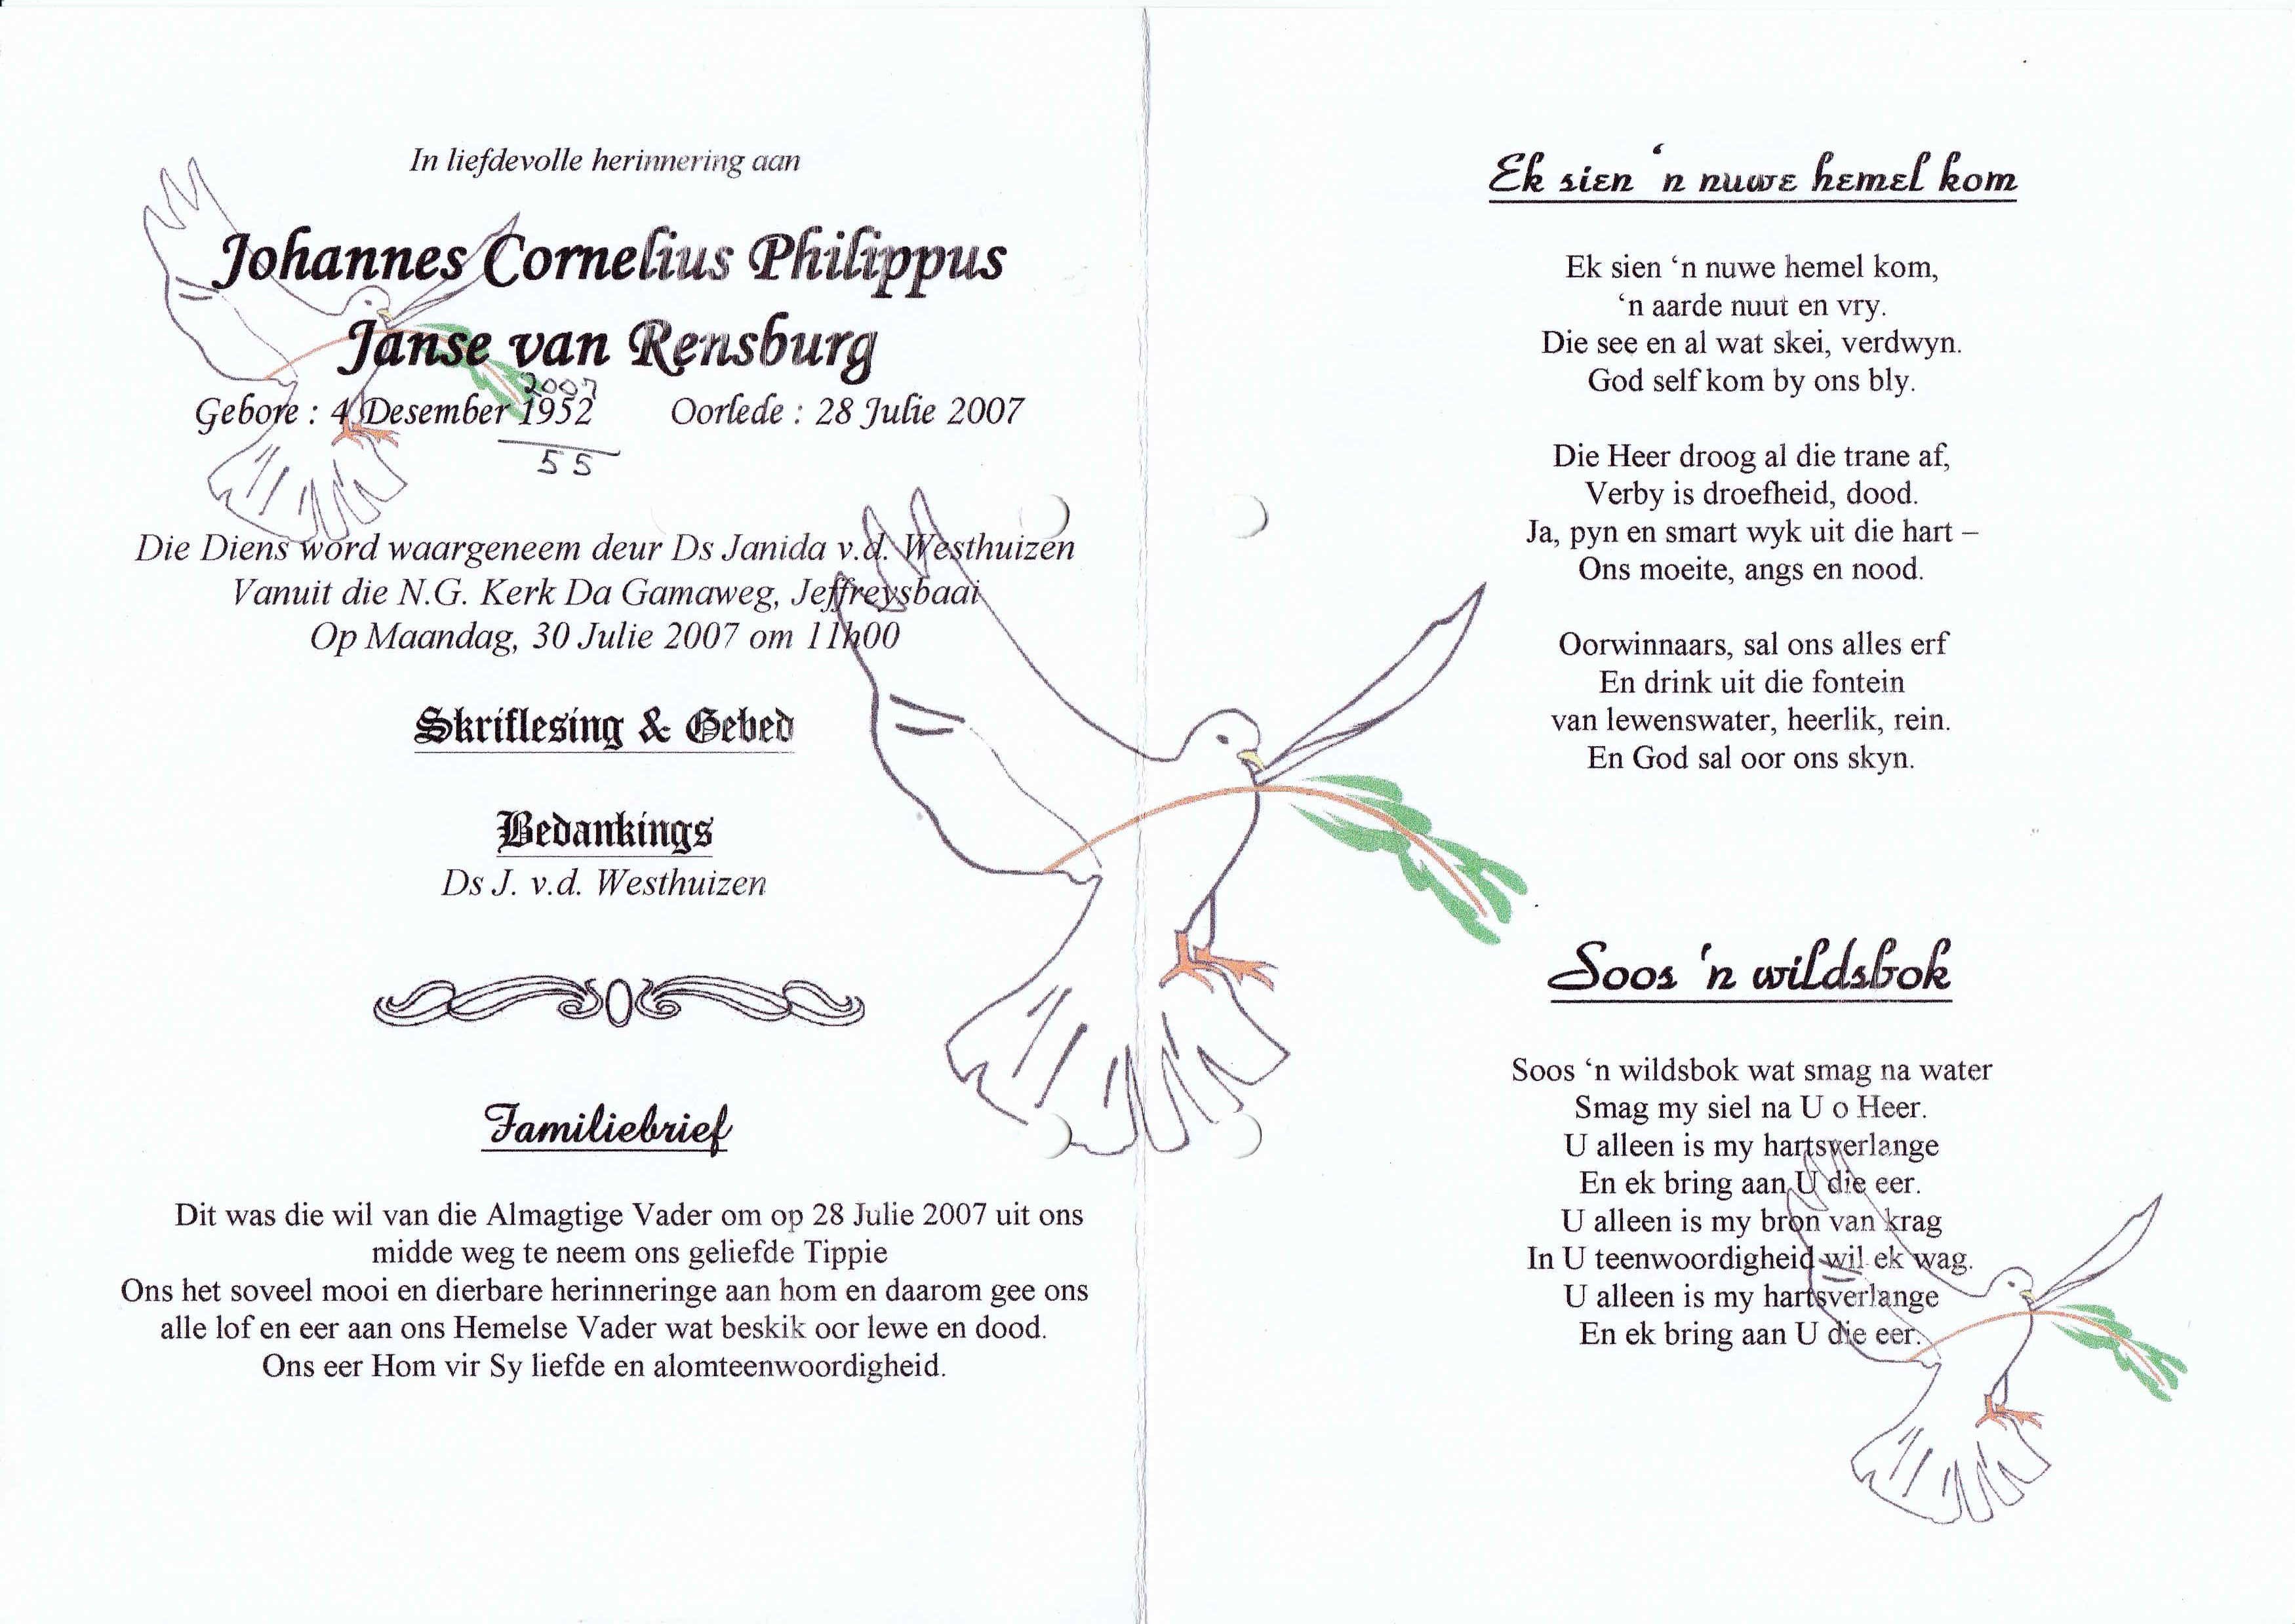 In liefdevolle herinnering aan
Johannes Cornelius Philippus
Janse van Rensburg
2007
Gebore : 4 Desember 1952 Oorlede : 28 Julie 2007
55
Die Diens word waargeneem deur Ds Janida v.d. Westhuizen
Vanuit die N.G. Kerk Da Gamaweg, Jeffreysbaai
Op Maandag, 30 Julie 2007 om 11h00
Skriflesing & Gebed
Bedankings
Ds J. v.d. Westhuizen
Familiebrief
Dit was die wil van die Almagtige Vader om op 28 Julie 2007 uit ons
midde weg te neem ons geliefde Tippie
Ons het soveel mooi en dierbare herinneringe aan hom en daarom gee ons
alle lof en eer aan ons Hemelse Vader wat beskik oor lewe en dood.
Ons eer Hom vir Sy liefde en alomteenwoordigheid.
Ek sien ‘n nuwe hemel kom
Ek sien ‘n nuwe hemel kom,
‘n aarde nuut en vry.
Die see en al wat skei, verdwyn.
God self kom by ons bly.
Die Heer droog al die trane af,
Verby is droefheid, dood.
Ja, pyn en smart wyk uit die hart –
Ons moeite, angs en nood.
Oorwinnaars, sal ons alles erf
En drink uit die fontein
van lewenswater, heerlik, rein.
En God sal oor ons skyn.
Soos ‘n wildsbok
Soos ‘n wildsbok wat smag na water
Smag my siel na U o Heer.
U alleen is my hartsverlange
En ek bring aan U die eer.
U alleen is my bron van krag
In U teenwoordigheid wil ek wag.
U alleen is my hartsverlange
En ek bring aan U die eer.